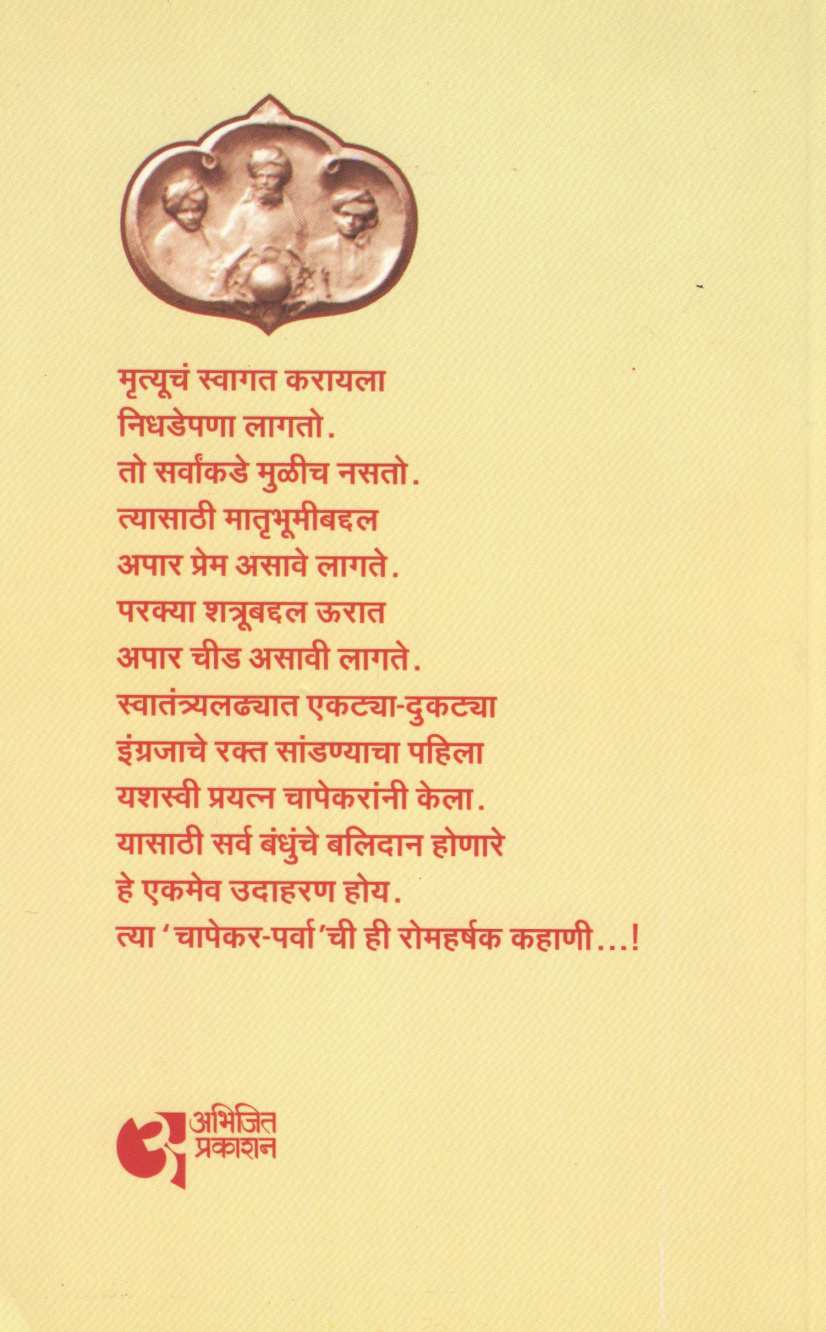 मृत्यूचं स्वागत करायला
निधडेपणा लागतो.
तो सर्वांकडे मुळीच नसतो.
त्यासाठी मातृभूमीबद्दल
अपार प्रेम असावे लागते.
परक्या शत्रूबद्दल ऊरात
अपार चीड असावी लागते.
स्वातंत्र्यलढ्यात एकट्या-दुकट्या
इंग्रजाचे रक्त सांडण्याचा पहिला
यशस्वी प्रयत्न चापेकरांनी केला.
यासाठी सर्व बंधुंचे बलिदान होणारे
हे एकमेव उदाहरण होय.
त्या ‘चापेकर-पर्वा’ची ही रोमहर्षक कहाणी...!
अभिजित
प्रकाशन